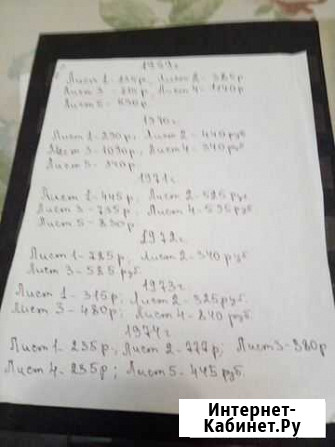 Лист 2 - 385р
Лист 3 - 315р, Лист 4 - 1140р
Лист 5 - 690р
1970г
Лист 1 - 290р, Лист 2 - 440руб
Лист 3 - 1090р, Лист 4 - 340руб
Лист 5 - 340р
1971г
Лист 1 - 445р, Лист 2 - 525руб
Лист 3 - 735р, Лист 4 - 535руб
Лист 5 - 830р
1972г
Лист 1 - 785р; Лист 2 - 340руб
Лист 3 - 585руб.
1973г
Лист 1 - 315р; Лист 2 - 325руб.
Лист 3 - 480р; Лист 4 - 840руб.
1974г
Лист 1 - 235р., Лист 2 - 777р; Лист 3 - 380р
Лист 4 - 235р; Лист 5 - 445руб.
Интернет-
Кабинет.Ру